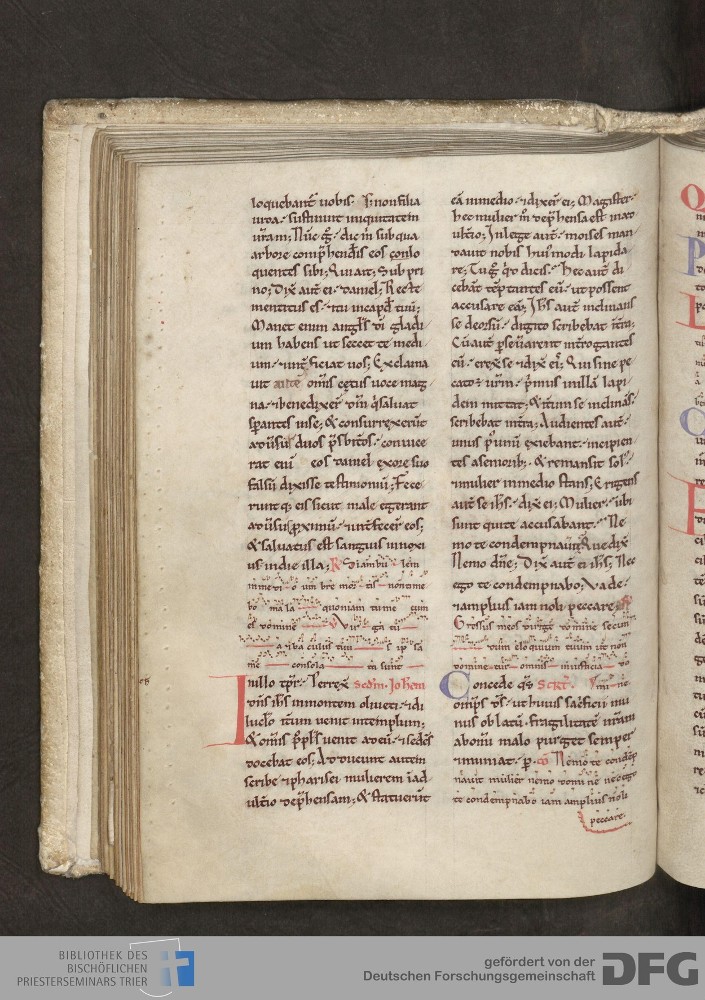 loquebanť uobis. S; non filia
iuda. sustinuit iniquitatem
uram; Nūc ġ. dic m̄ sub qua
arbore comp̄hendis eos conlo
quentes sibi; Qui ait; Sub pri
no; Dix̄ aut̄ ei daniel; Recte
mentitus es. & tu in cap̄ tuū;
Manet enim angl̄s dī gladi
um habens ut secet te medi
um. & int̄ficiat uos; Exclama
uit omīs cętus uoce mag
na. & benedixer̄ dm̄ q̇ saluat
sp̄antes in se; & consurrexer̄t
aduersū duos p̄sbit̄os. conuice
rat enī eos daniel ex ore suo
falsū dixisse testimoniū; Fece
runt q; eis sicut male egerant
aduersū p̄ximū. & int̄fecer̄ eos;
& saluatus est sanguis innoxi
us in die illa; R Si ambulem
in me di o um bre mor tis non time
bo ma la quoniam tu me cum
es domine V Vir ga tu
a & ba culus tuus ip sa
me consola ta sunt
In illo tp̄r. Perrex̄ Scdm Iohem
dn̄s ih̄s in montem oliueti. & di
luc̄lo it̄um uenit in templum;
& omīs pp̄ls uenit ad eū. & sedēs
docebat eos; Adducunt autem
scribe & pharisei mulierem ī ad
ult̄io dep̄hensam; & statuer̄t
eā in medio. & dixer̄ ei; Magister.
hec mulier m̄ dep̄hensa est in ad
ult̄io; In lege aut̄ moises man
dauit nobis hui'modi lapida
re; Tu ġ q̇d dicis. Hec aut̄ di
cebāt tēptantes eū. ut possent
accusare eā; Ih̄s aut̄ inclinans
se deorsū. digito scribebat in t̄ra;
Cū aut̄ p̄seuerarent int̄rogantes
eū. erex̄ se & dix̄ eis; Qui sine pec
cato ē ur̄m. p̄mus in illā lapi
dem mittat; & it̄um se inclinās.
scribebat in t̄ra; Audientes aut̄.
unus p̄ unū exiebant. incipien
tes a seniorib;. & remansit sol'.
& mulier in medio stans; Erigens
aut̄ se ih̄s. dix̄ ei; Mulier. ubi
sunt qui te accusabant. Ne
mo te condempnauit; Que dix̄
Nemo dn̄e; Dix̄ aut̄ ei ih̄s; Nec
ego te condempnabo; Vade.
& amplius iam noli peccare.
Gressus meos dirige domine secun
dum eloquium tuum ut non
dominetur omnis iniusticia do
Concede q̄s Scrt̄. mi ne
omp̄s ds̄. ut huius sac̄ficii mu
nus oblatū. fragilitatē nr̄am
ab omī malo purget semper
& muniat. p. co Nemo te condēp
nauit mulier nemo domine nec ego
te condempnabo iam amplius noli
peccare.
BIBLIOTHEK DES
BISCHÖFLICHEN
PRIESTERSEMINARS TRIER
gefördert von der
Deutschen Forschungsgemeinschaft
DFG